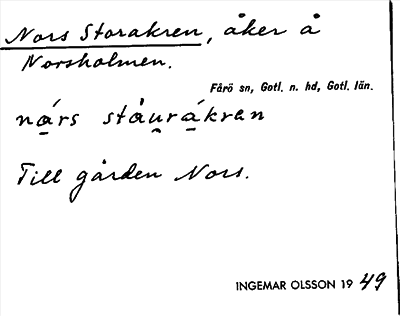 Nors Storakren, åker å
Norsholmen.
Fårö sn, Gotl. n. hd, Gotl. län.
nárs ståurákren
Till gården Nors.
INGEMAR OLSSON 1949